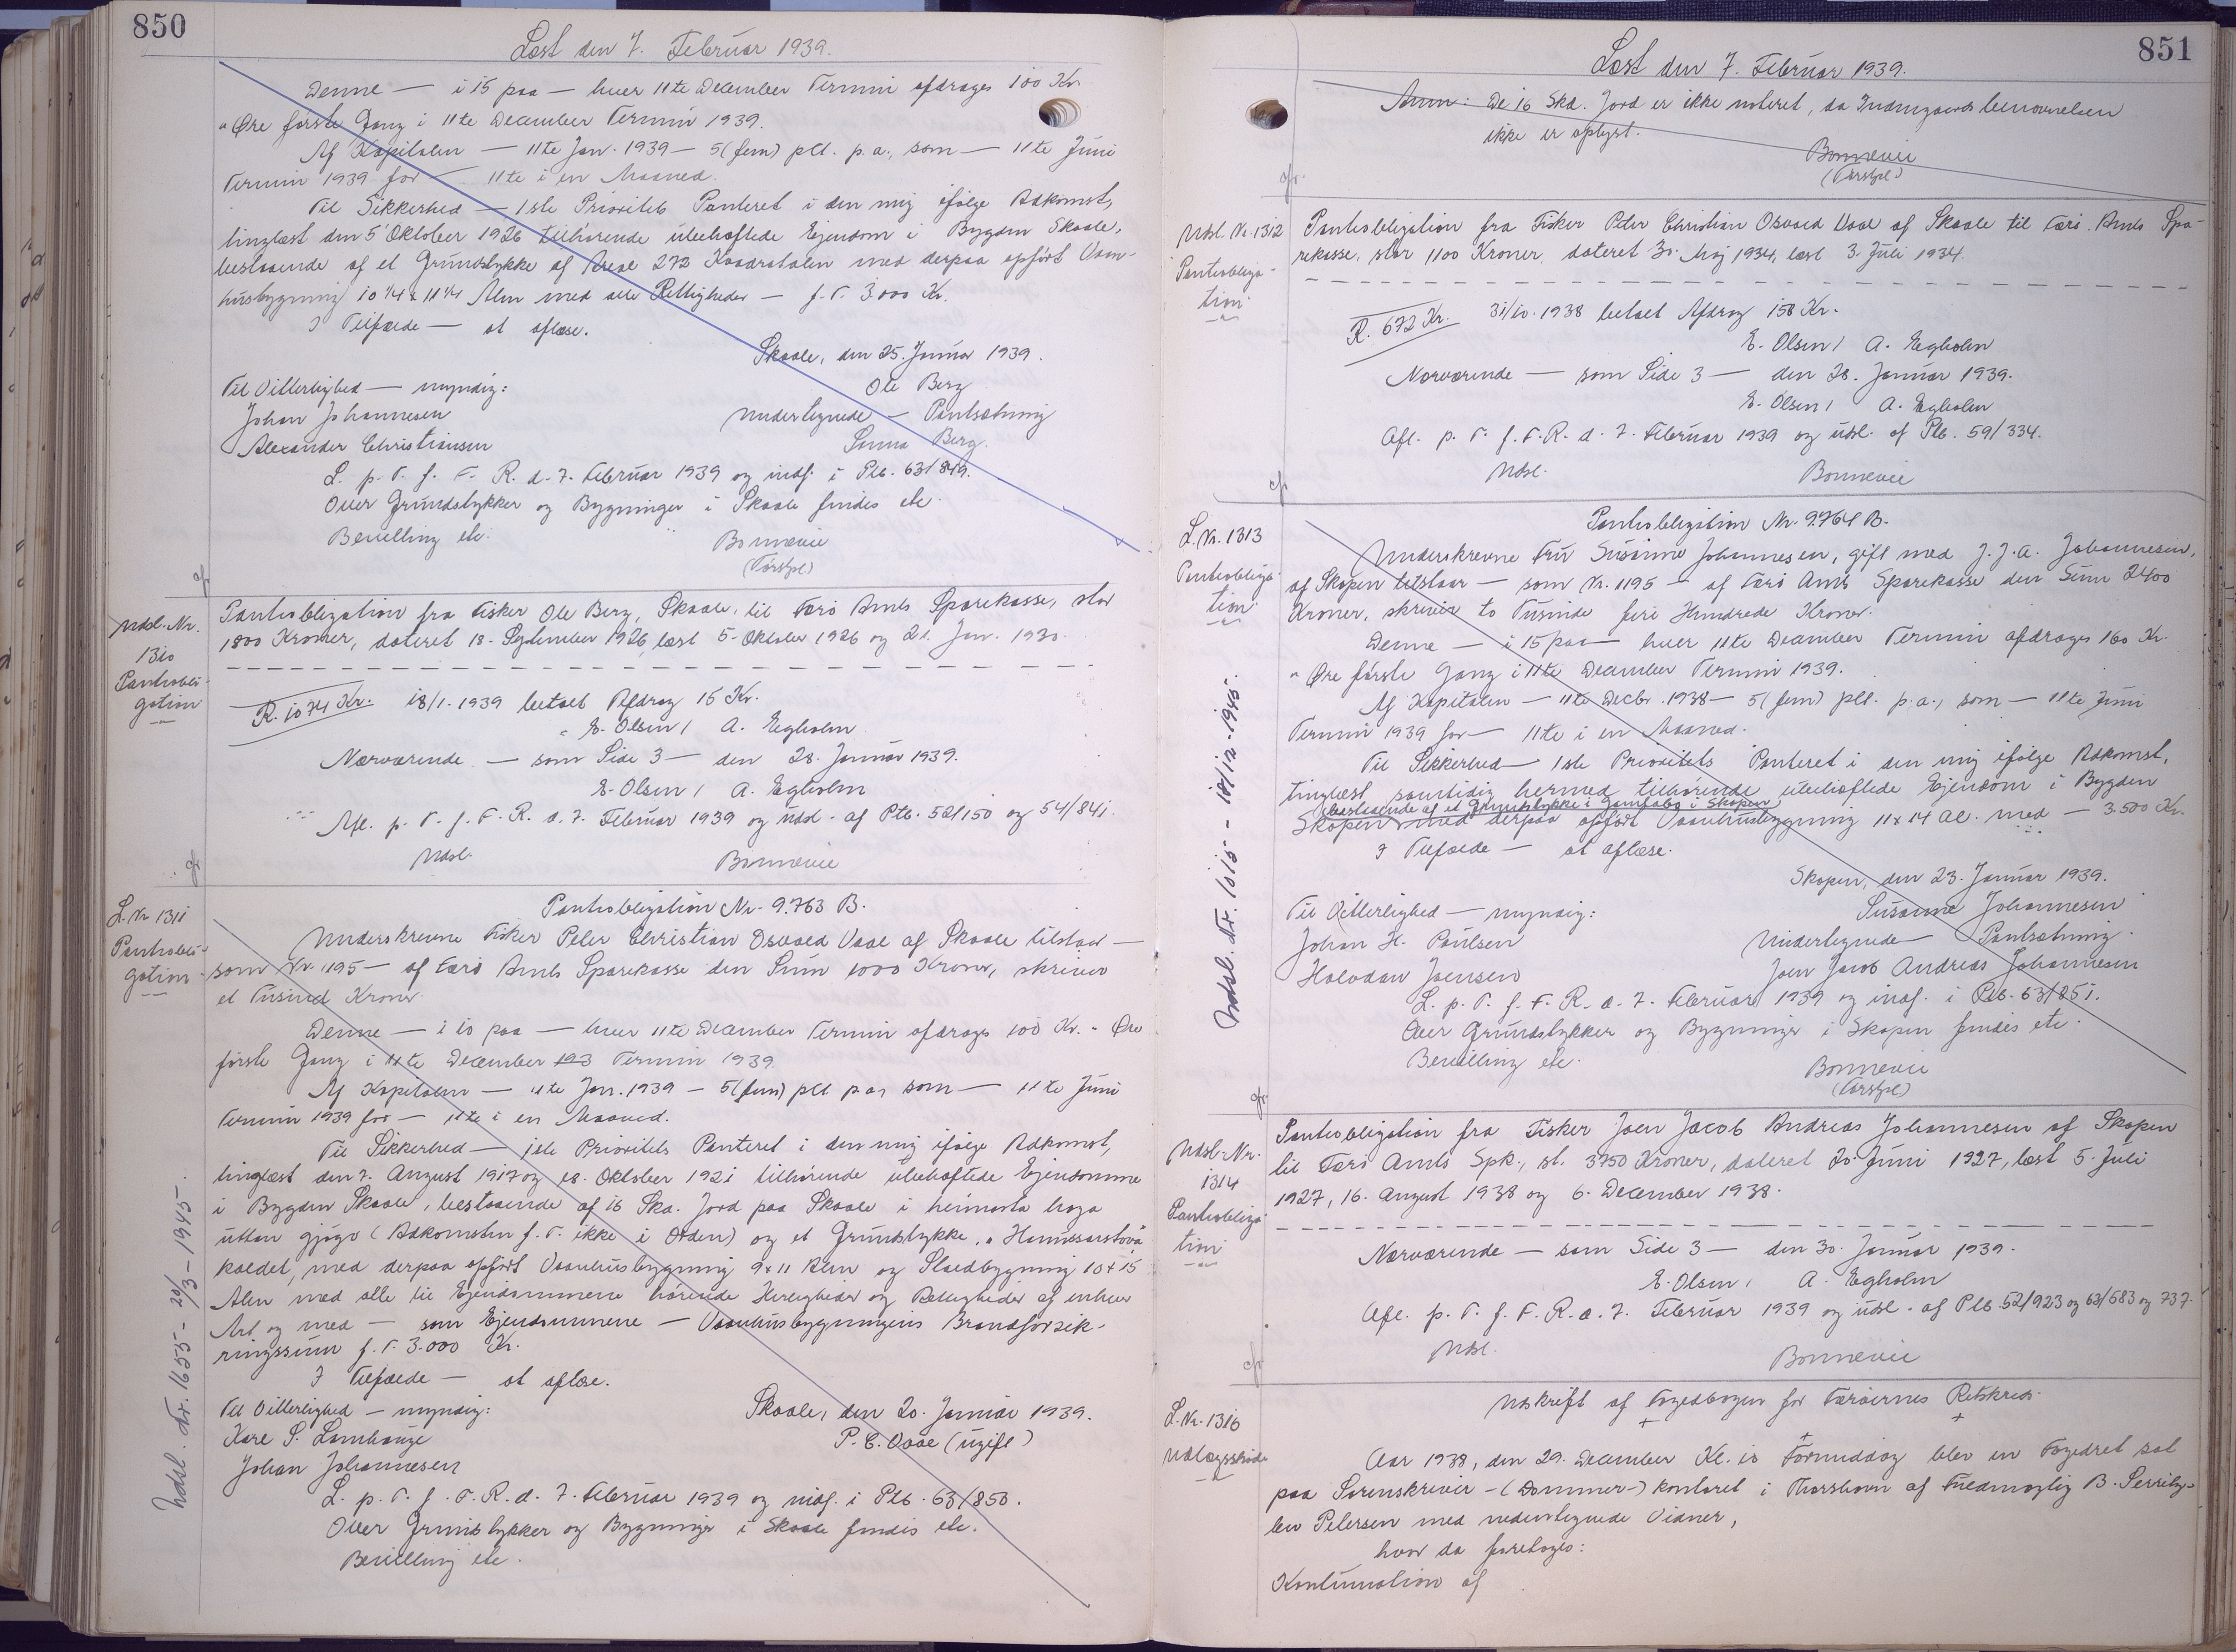 850
Læst den 7. Februar 1939.
Denne — i 15 paa — hver 11te December Termin afdrages 100 Kr.
" Øre første Gang i 11te December Termin 1939.
Af Kapitalen — 11te Jan. 1939 — 5 (fem) pCt. p.a., som — 11te Juni
Termin 1939 for — 11te i en Maaned.
Til Sikkerhed — 1ste Prioritets Panteret i den mig ifølge Adkomst,
tinglæst den 5' Oktober 1926 tilhørende ubehæftede Ejendom i Bygden Skaale,
bestaaende af et Grundstykke af Areal 272 Kvadratalen med derpaa opført Vaan-
husbygning 10 1/4 x 11 1/4 Alen med alle Rettigheder — f.T. 3.000 Kr.
I Tilfælde — at aflæse.
Skaale, den 25. Januar 1939.
Til Vitterlighed — myndig:
Ole Berg
Johan Johannesen
Undertegnede — Pantsætning
Alexander Christiansen
Sunna Berg.
L. p. T. f. F. R. d. 7. Februar 1939 og indf. i Ptb. 63/849.
Over Grundstykker og Bygninger i Skaale findes etc.
Bevilling etc.
Bonnevie
(Torshpl)
cfr
Udsl. Nr.
1310
Pantobli-
gation
Pantobligation fra Fisker Ole Berg, Skaale, til Færø Amts Sparekasse, stor
1800 Kroner, dateret 18. September 1926, læst 5. Oktober 1926 og 21. Jan. 1930.
R. 1074 Kr. 18/1. 1939 betalt Afdrag 15 Kr.
E. Olsen / A. Egholm
Nærværende — som Side 3 — den 28. Januar 1939.
E. Olsen / A. Egholm
Afl. p. T. f. F. R. d. 7. Februar 1939 og udsl. af Ptb. 52/150 og 54/841.
Udsl.
Bonnevie
cfr
L. Nr 1311
Pantobli-
gation
Pantobligation Nr. 9.763 B.
Underskrevne Fisker Peter Christian Osvald Vaal af Skaale tilstaar —
som Nr. 1195 — af Færø Amts Sparekasse den Sum 1000 Kroner, skriver
et Tusind Kroner.
Denne — i 10 paa — hver 11te December Termin afdrages 100 Kr. " Øre
første Gang i 11te December 193 Termin 1939
Af Kapitalen — 11te Jan. 1939 — 5 (fem) pCt. p.a, som — 11te Juni
Termin 1939 for — 11te i en Maaned.
Til Sikkerhed — 1ste Prioritets Panteret i den mig ifølge Adkomst,
tinglæst den 7. August 1917 og 18. Oktober 1921 tilhørende ubehæftede Ejendomme
i Bygden Skaale, bestaaende af 16 Ska. Jord paa Skaale i heimasta haga
uttan gjógv (Adkomsten f.T. ikke i Orden) og et Grundstykke, "Hanussarstova"
kaldet, med derpaa opført Vaanhusbygning 9 x 11 Alen og Staldbygning 10 x 15
Alen med alle til Ejendommene hørende Herligheder og Rettigheder af enhver
Art og med — som Ejendommene — Vaanhusbygningens Brandforsik-
ringssum f.T. 3.000 Kr.
I Tilfælde — at aflæse.
Til Vitterlighed — myndig:
Skaale, den 20. Januar 1939.
Karl S. Lamhauge
P. C. Vaal (ugift)
Johan Johannesen
L. p. T. f. F. R. d. 7. Februar 1939 og indf. i Ptb. 63/850.
Over Grundstykker og Bygninger i Skaale findes etc.
Bevilling etc.
Udsl. Nr. 1655 - 20/3 - 1945.
851
Læst den 7. Februar 1939.
Anm: De 16 Skd. Jord er ikke noteret, da Indmgaards benævnelsen
ikke er oplyst.
Bonnevie
(Torshpl)
cfr.
Udsl. Nr. 1312
Pantobliga-
tion
Pantobligation fra Fisker Peter Christian Osvald Vaal af Skaale til Færø Amts Spa-
rekasse, stor 1100 Kroner, dateret 30. Maj 1934, læst 3. Juli 1934.
R. 672 Kr. 31/10. 1938 betalt Afdrag 158 Kr.
E. Olsen / A. Egholm
Nærværende — som Side 3 — den 28. Januar 1939.
E. Olsen / A. Egholm
Afl. p. T. f. F. R. d. 7. Februar 1939 og udsl. af Ptb. 59/334.
Udsl.
Bonnevie
cfr
L. Nr. 1313
Pantobliga-
tion
Pantobligation Nr. 9.764 B.
Underskrevne Fru Susanne Johannesen, gift med J. J. A. Johannesen,
af Skopen tilstaar — som Nr. 1195 — af Færø Amts Sparekasse den Sum 2400
Kroner, skriver to Tusinde fire Hundrede Kroner.
Denne — i 15 paa — hver 11te December Termin afdrages 160 Kr.
" Øre første Gang i 11te December Termin 1939.
Af Kapitalen — 11te Decbr. 1938 — 5 (fem) pCt. p.a., som — 11te Juni
Termin 1939 for — 11te i en Maaned.
Til Sikkerhed — 1ste Prioritets Panteret i den mig ifølge Adkomst,
tinglæst samtidig hermed tilhørende ubehæftede Ejendom i Bygden
bestaaende af et Grundstykke i Gamlabø i Skopen
Skopen med derpaa opført Vaanhusbygning 11 x 14 Al. med — 3.500 Kr.
I Tilfælde — at aflæse.
Skopen, den 23. Januar 1939.
Til Vitterlighed — myndig:
Susanne Johannesen
Johan H. Poulsen
Undertegnede — Pantsætning.
Halvdan Joensen
Joen Jacob Andreas Johannesen
L. p. T. f. F. R. d. 7. Februar 1939 og indf. i Ptb. 63/851.
Over Grundstykker og Bygninger i Skopen findes etc.
Bevilling etc.
Bonnevie
(Torshpl)
Udsl. Nr. 1015 - 18/12 - 1945.
cfr.
Udsl. Nr.
1314
Pantobliga-
tion
Pantobligation fra Fisker Joen Jacob Andreas Johannesen af Skopen
til Færø Amts Spk., st. 3750 Kroner, dateret 20. Juni 1927, læst 5. Juli
1927, 16. August 1938 og 6. December 1938.
Nærværende — som Side 3 — den 30. Januar 1939.
E. Olsen / A. Egholm
Afl. p. T. f. F. R. d. 7. Februar 1939 og udsl. af Ptb. 52/923 og 63/583 og 737.
Udsl.
Bonnevie
cfr
L. Nr. 1316
Udlægsskøde
Udskrift af Fogedbogen for Færøernes Retskreds
Aar 1938, den 29. December Kl. 10 Formiddag blev en Fogedret sat
paa Sorenskriver-(Dommer-)kontoret i Thorshavn af Fuldmægtig B. Serritz-
lev Petersen med undertegnede Vidner,
hvor da foretoges:
Kontinuation af